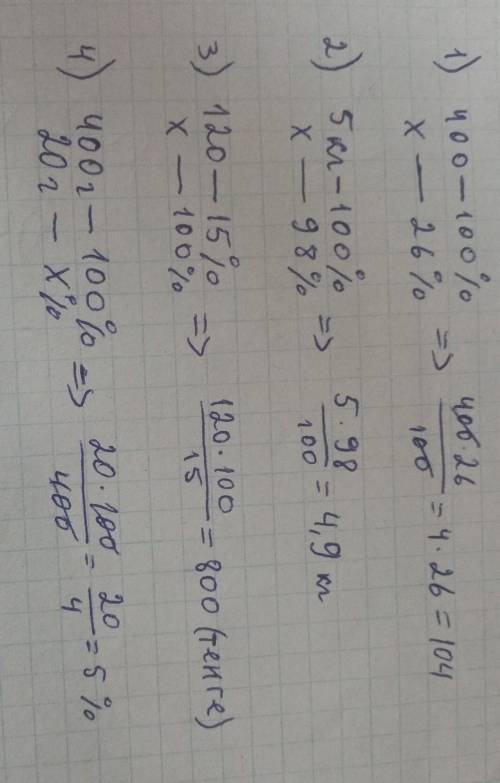 1) 400 — 100%
x — 26% => 400·26/100 = 4·26 = 104
2) 5 кг — 100%
x — 98% => 5·98/100 = 4,9 кг
3) 120 — 15%
x — 100% => 120·100/15 = 800 (тенге)
4) 400г — 100%
20г — x% => 20·100/400 = 20/4 = 5%